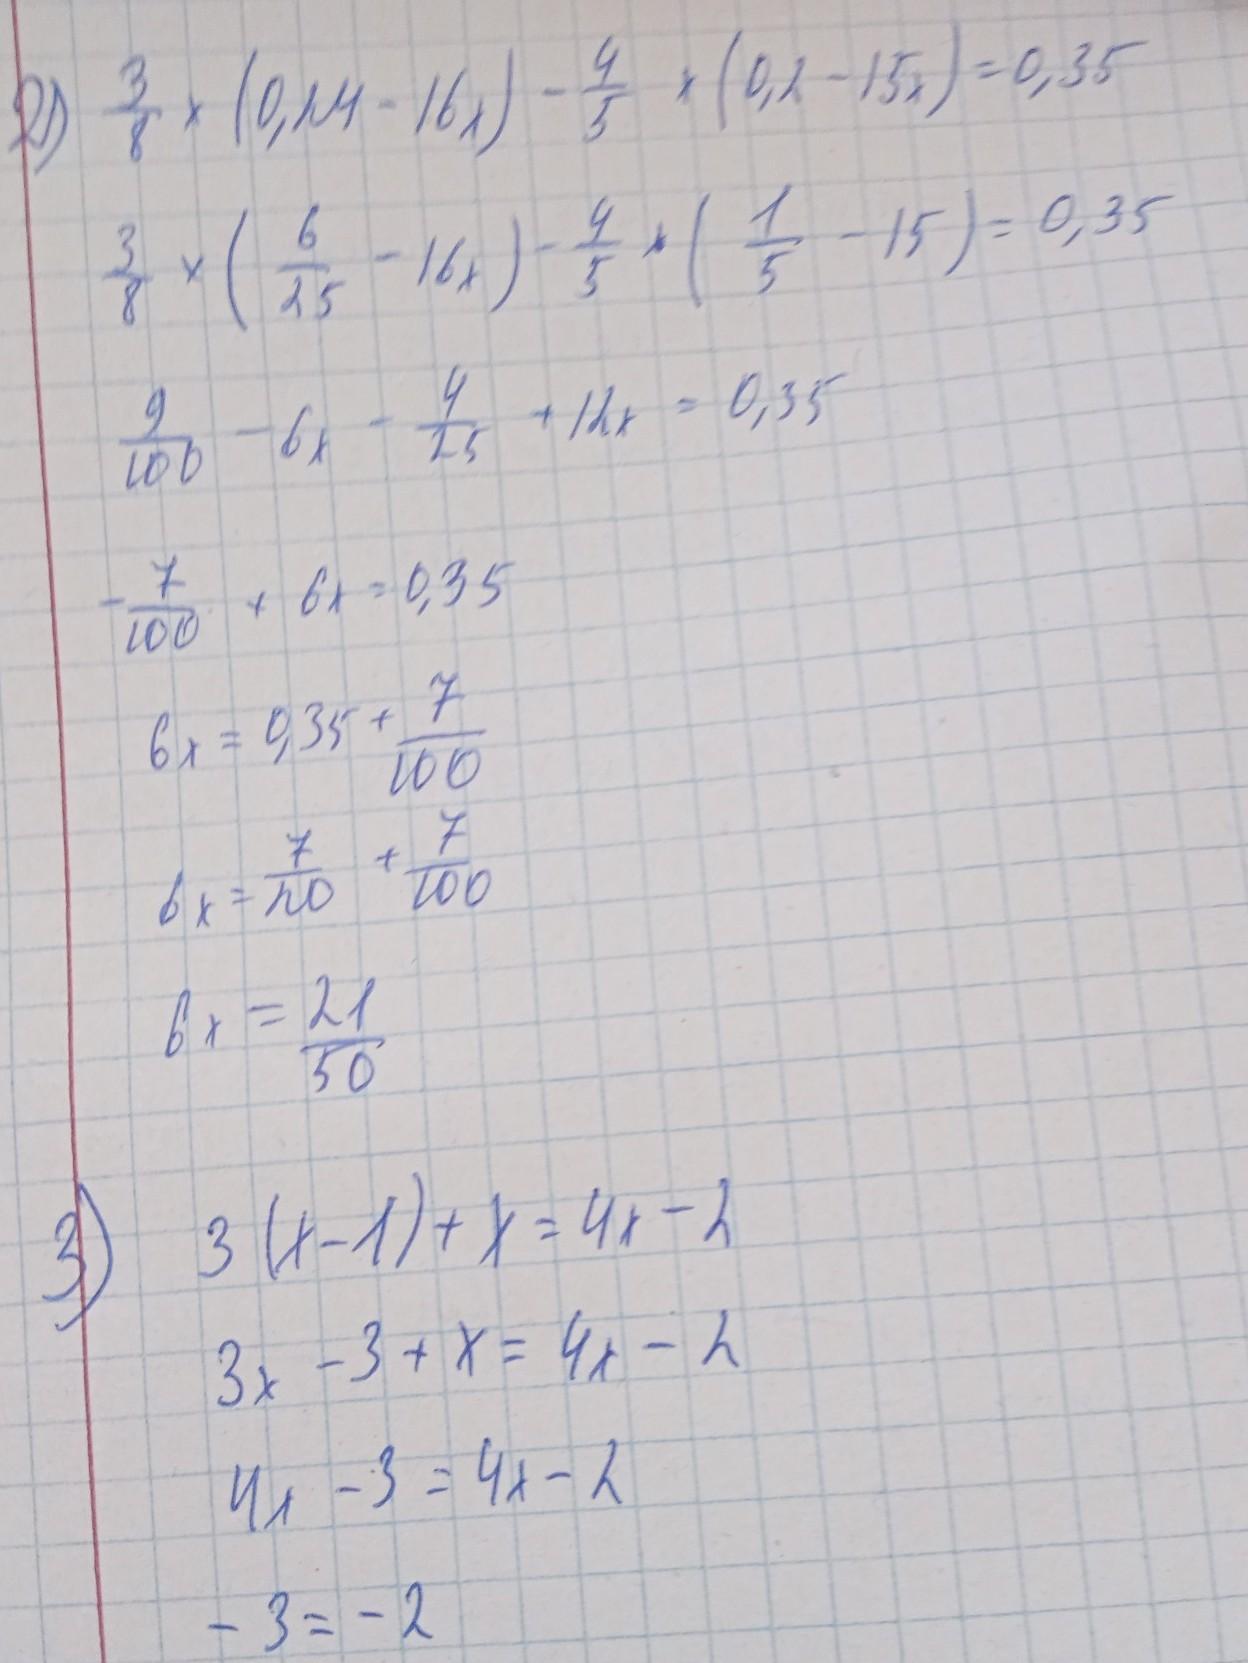 2) 3/8 × (0,24 - 16x) - 4/5 × (0,2 - 15x) = 0,35
3/8 × (6/25 - 16x) - 4/5 × (1/5 - 15) = 0,35
9/100 - 6x - 4/25 + 12x = 0,35
- 7/100 + 6x = 0,35
6x = 0,35 + 7/100
6x = 7/20 + 7/100
6x = 21/50
3) 3(x - 1) + x = 4x - 2
3x - 3 + x = 4x - 2
4x - 3 = 4x - 2
- 3 = - 2